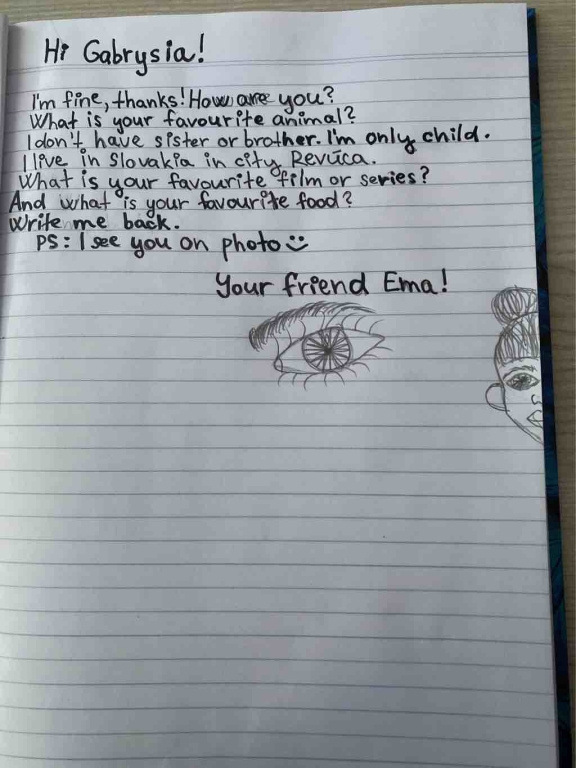 Hi Gabrysia!
I'm fine, thanks! How are you?
What is your favourite animal?
I don't have sister or brother. I'm only child.
I live in Slovakia in city Revúca.
What is your favourite film or series?
And what is your favourite food?
Write me back.
PS: I see you on photo☺
Your friend Ema!